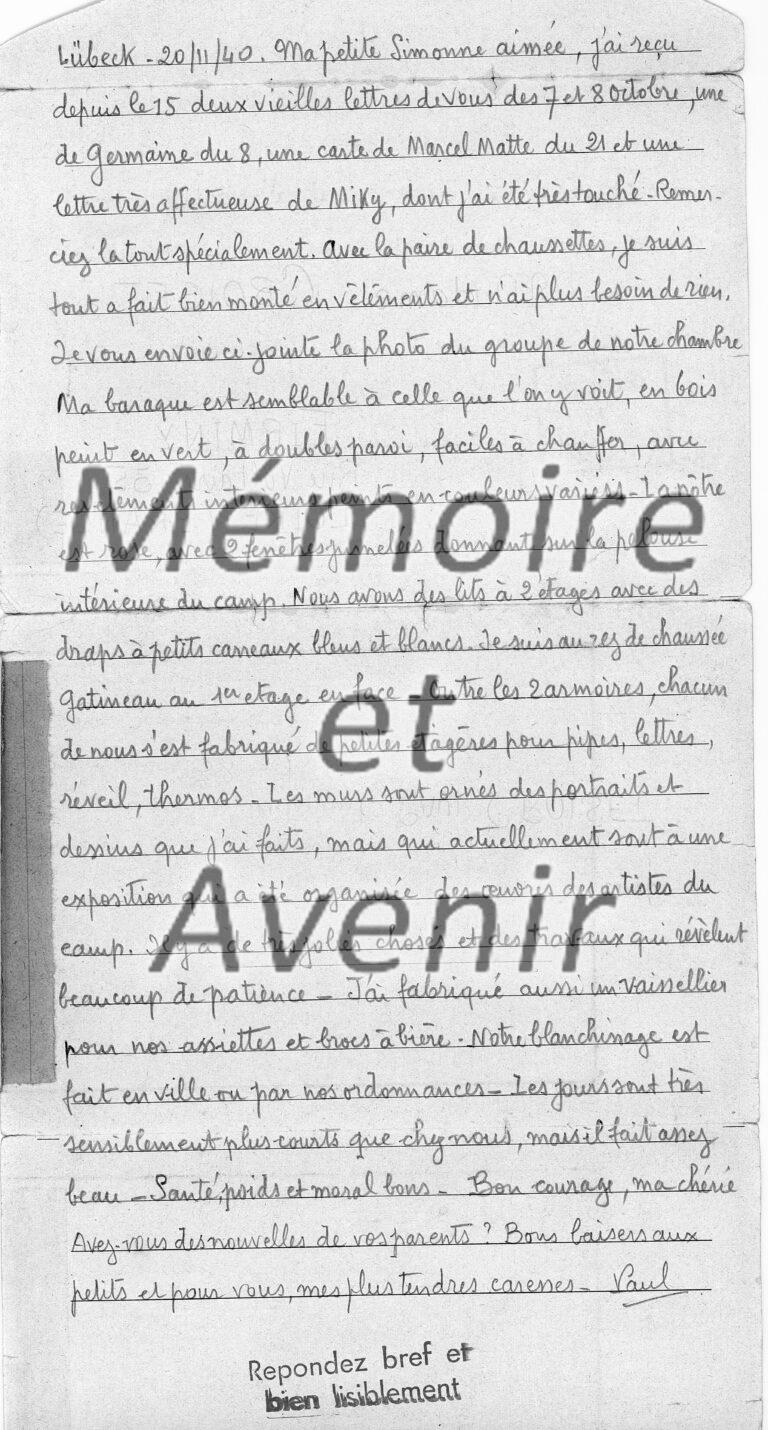 Lübeck - 20/11/40. Ma petite Simonne aimée, j'ai reçu
depuis le 15 deux vieilles lettres de vous des 7 et 8 Octobre, une
de Germaine du 8, une carte de Marcel Matte du 21 et une
lettre très affectueuse de Miky, dont j'ai été très touché - Remer-
ciez la tout spécialement. Avec la paire de chaussettes, je suis
tout a fait bien monté en vêtéments et n'ai plus besoin de rien.
Je vous envoie ci-jointe la photo du groupe de notre chambre
Ma baraque est semblable à celle que l'on y voit, en bois
peint en vert, à doubles paroi, faciles à chauffer, avec
ses éléments intérieurs peints en couleurs variées - La nôtre
est rose, avec 2 fenêtres jumelées donnant sur la pelouse
intérieure du camp. Nous avons des lits à 2 étages avec des
draps à petits carreaux bleus et blancs. Je suis au rez de chaussée
Gatineau au 1er etage en face - Outre les 2 armoires, chacun
de nous s'est fabriqué de petites étagères pour pipes, lettres,
réveil, thermos - Les murs sont ornés des portraits et
dessins que j'ai faits, mais qui actuellement sont à une
exposition qui a été organisée des œuvres des artistes du
camp. Il y a de très jolies choses et des travaux qui révèlent
beaucoup de patience - J'ai fabriqué aussi un vaissellier
pour nos assiettes et brocs à bière. Notre blanchissage est
fait en ville ou par nos ordonnances - Les jours sont très
sensiblement plus courts que chez nous, mais il fait assez
beau - Santé, poids et moral bons - Bon courage, ma chérie
Avez-vous des nouvelles de vos parents ? Bons baisers aux
petits et pour vous, mes plus tendres caresses - Paul
Repondez bref et
bien lisiblement
Mémoire
et
Avenir